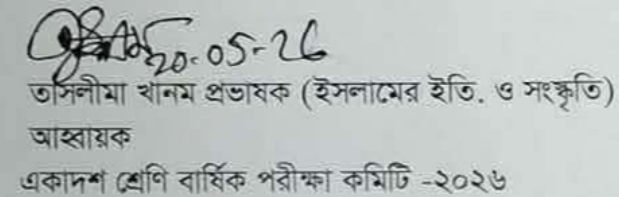 20-05-26
তাসলীমা খানম প্রভাষক (ইসলামের ইতি. ও সংস্কৃতি)
আহ্বায়ক
একাদশ শ্রেণি বার্ষিক পরীক্ষা কমিটি -২০২৬